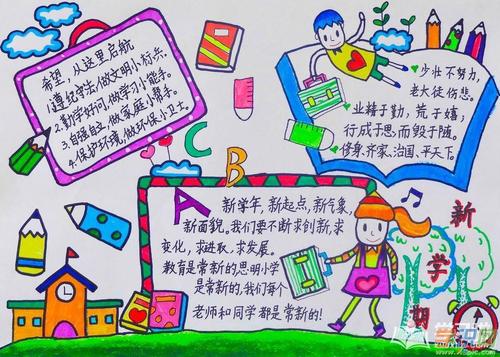 希望,从这里启航
1.遵纪守法,做文明小标兵。
2.勤学好问,做学习小能手。
3.自强自立,做家庭小帮手。
4.保护环境,做环保小卫士。
少壮不努力,
老大徒伤悲。
业精于勤,荒于嬉;
行成于思,而毁于随。
修身、齐家、治国、平天下。
A B C
新学年,新起点,新气象,
新面貌,我们要不断求创新,求
变化,求进取,求发展。
教育是常新的思明小学
是常新的,我们每个
老师和同学都是常新的!
新
学
期